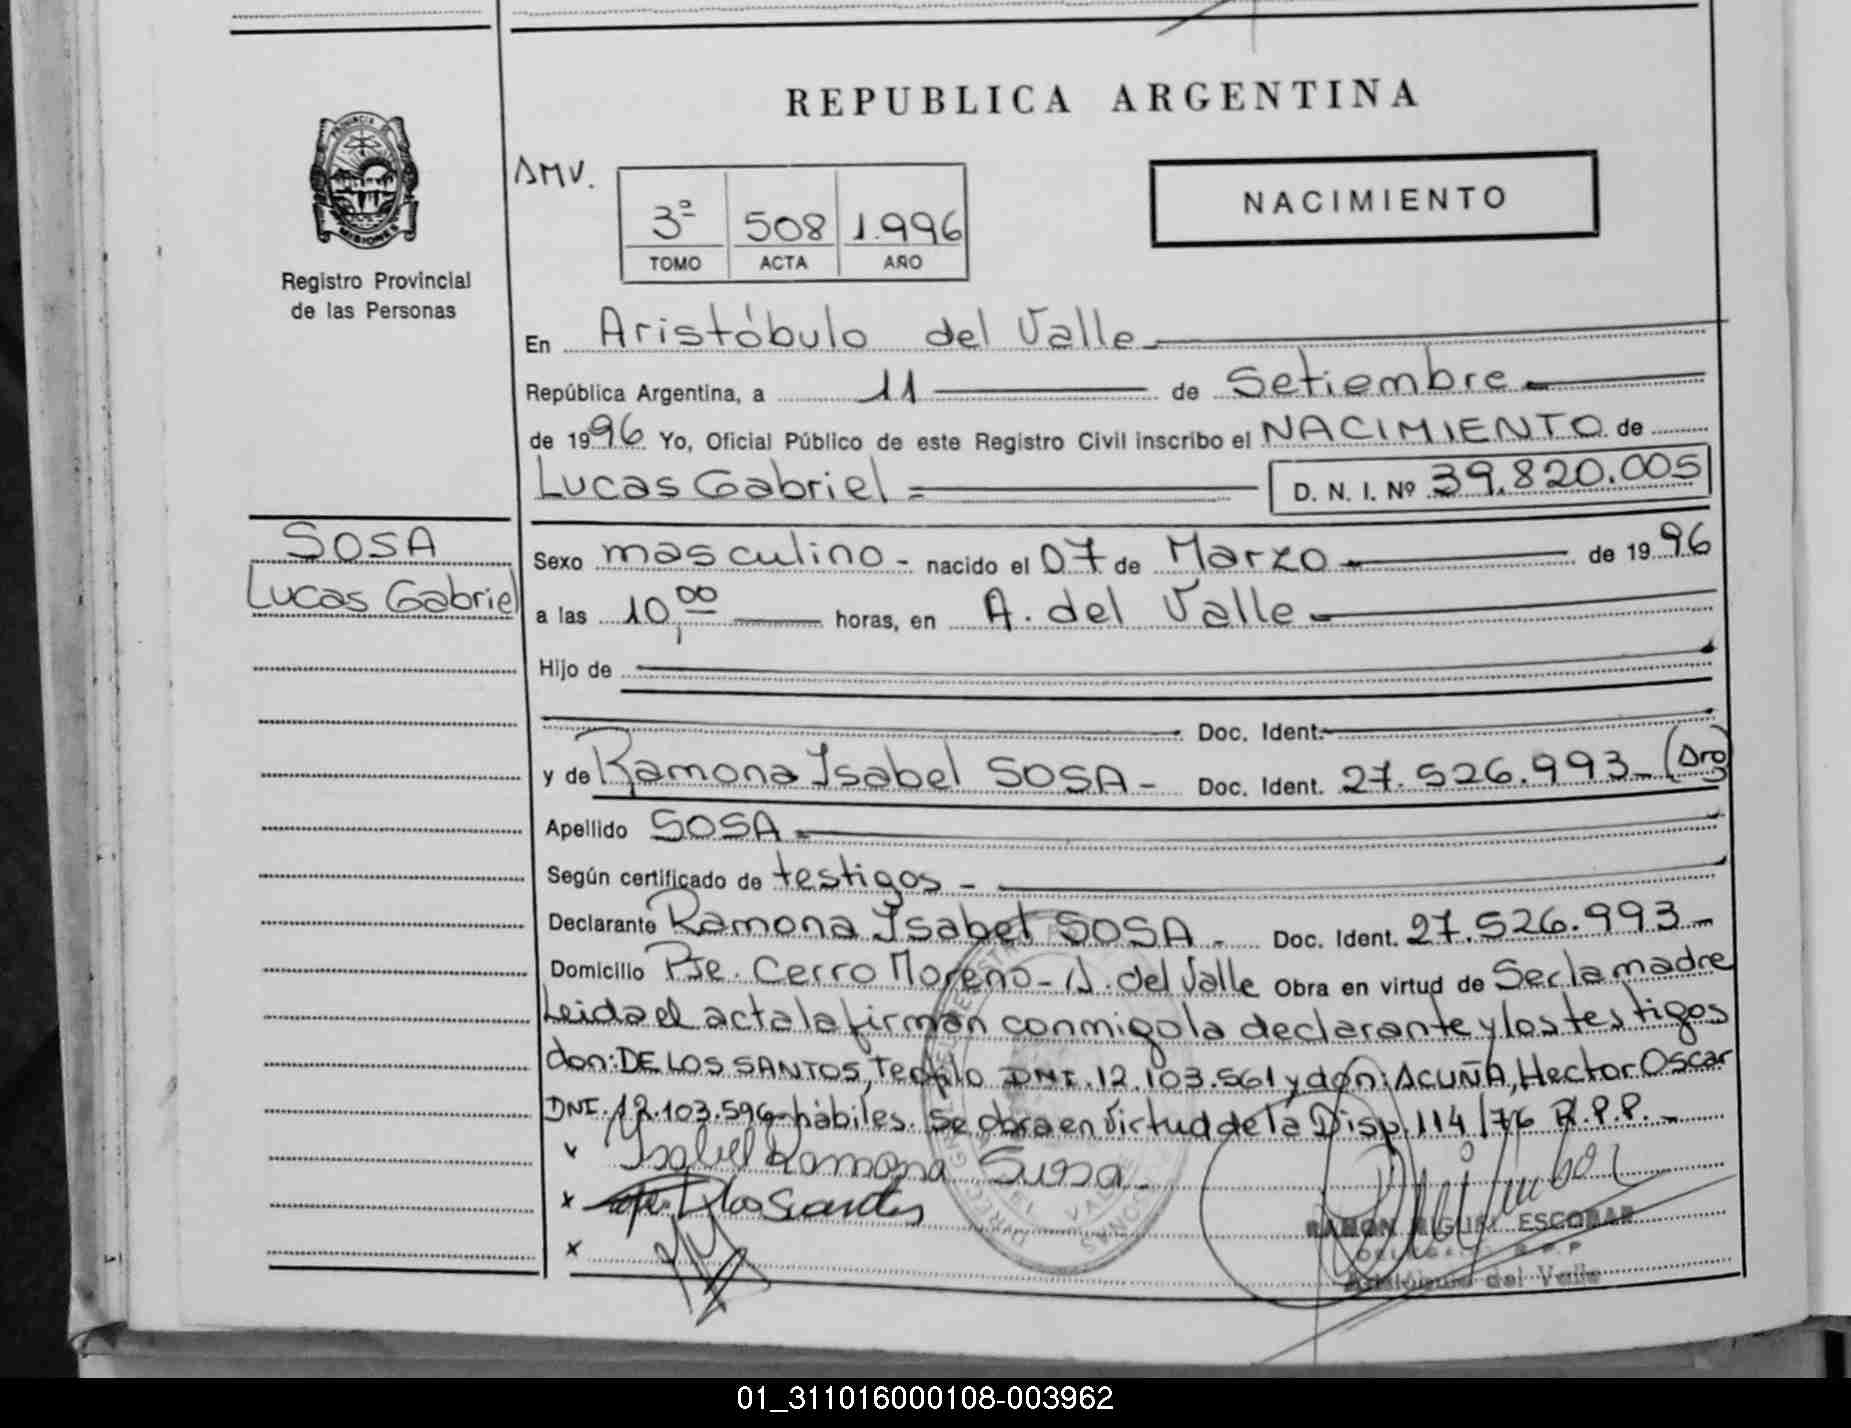 REPUBLICA ARGENTINA
PROVINCIA DE
MISIONES
Registro Provincial
de las Personas
AMV.
3ª 508 1.996
TOMO ACTA AÑO
NACIMIENTO
En Aristóbulo del Valle
República Argentina, a 11 de Setiembre
de 1996 Yo, Oficial Público de este Registro Civil inscribo el NACIMIENTO de
Lucas Gabriel = D. N. I. Nº 39.820.005
SOSA
Lucas Gabriel
Sexo masculino - nacido el 07 de Marzo de 1996
a las 10,00 horas, en A. del Valle
Hijo de
Doc. Ident.
y de Ramona Isabel SOSA - Doc. Ident. 27.526.993 - (Arg
Apellido SOSA
Según certificado de testigos -
Declarante Ramona Isabel SOSA - Doc. Ident. 27.526.993 -
Domicilio Pje. Cerro Moreno - A. del Valle Obra en virtud de Ser la madre
Leida el acta la firman conmigo la declarante y los testigos
don: DE LOS SANTOS, Teofilo DNI. 12.103.561 y don: ACUÑA, Hector Oscar
DNI. 12.103.596 hábiles. Se obra en virtud de la Disp. 114/76 R.P.P. -
Isabel Ramona Sussa
x
x
RAMON MIGUEL ESCOBAR
DELEGADO R.P.P
Aristóbulo del Valle
01_311016000108-003962